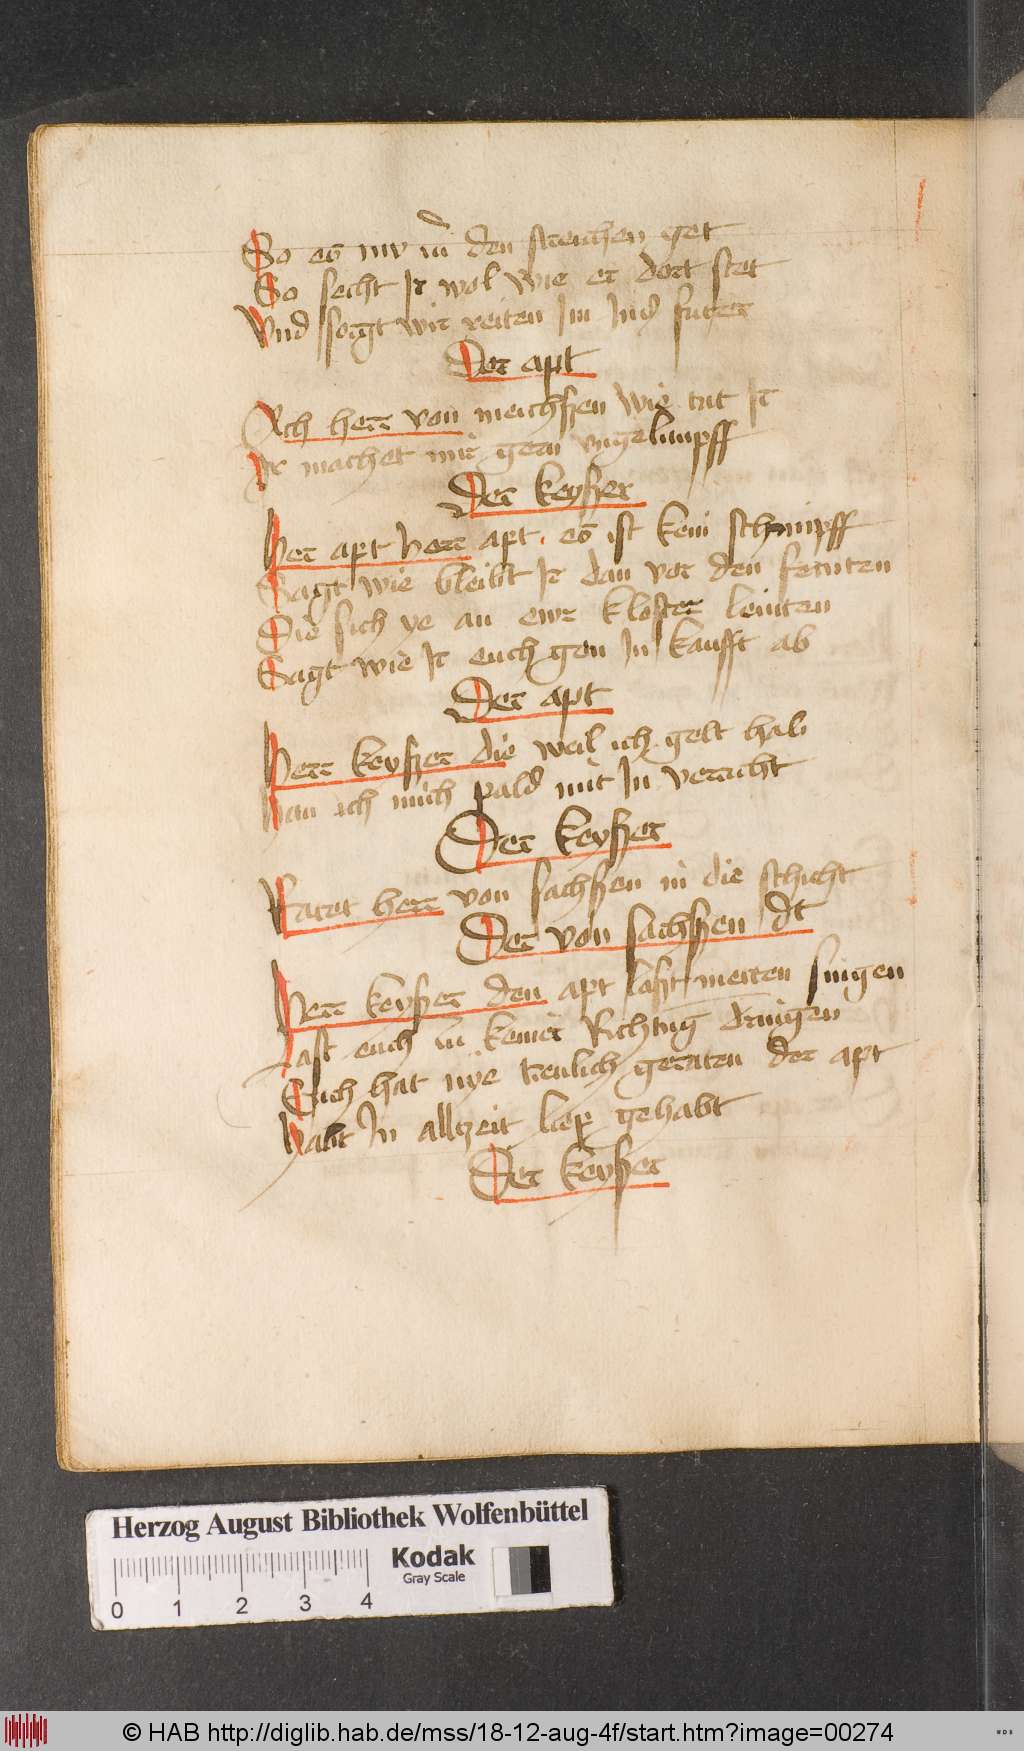 So es nw in den streichen get
So secht Ir wol wie er dort stet
Vnd sorgt wir reiten Im Inß futer
Der apt
Ach herr von meichszen wie tut Ir
Ir machet mir gern vngelimpff
Der keyszer
Her apt herr apt es ist kein schimpff
Sagt wie bleibt Ir dan vor den feinten
Die sich ye an ewr kloster leinten
Sagt wie Ir euch gen In kaufft ab
Der apt
Herr keyszer die weil ich gelt hab
Han ich mich pald mit In verricht
Der keyszer
Ratet herr von sachszen in die schicht
Der von sachszen dt
Herr keyszer den apt laszt metten singen
Last euch in keiner Richtung dringen
Euch hat nye treulich geraten der apt
Habt In allzeit liep gehabt
Der keyszer
Herzog August Bibliothek Wolfenbüttel
Kodak
Gray Scale
0 1 2 3 4
© HAB http://diglib.hab.de/mss/18-12-aug-4f/start.htm?image=00274